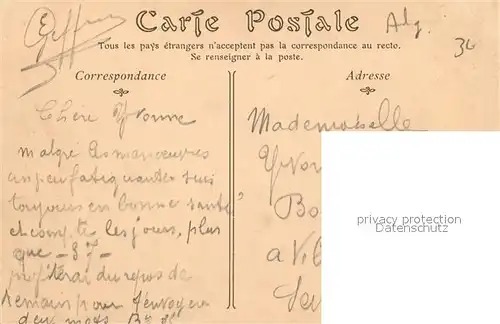 Carte Postale
Alg.
36
Tous les pays étrangers n'acceptent pas la correspondance au recto.
Se renseigner à la poste.
Correspondance
Adresse
Chère Yvonne
malgré les manœuvres
un peu fatiguantes suis
toujours en bonne santé
et compte les jours, plus
que - 37 -
profiterai du repos de
demain pour t'envoyer
deux mots
Mademoiselle
Yvon
Bo
a Vil
privacy protection
ansichtskarten-center.de